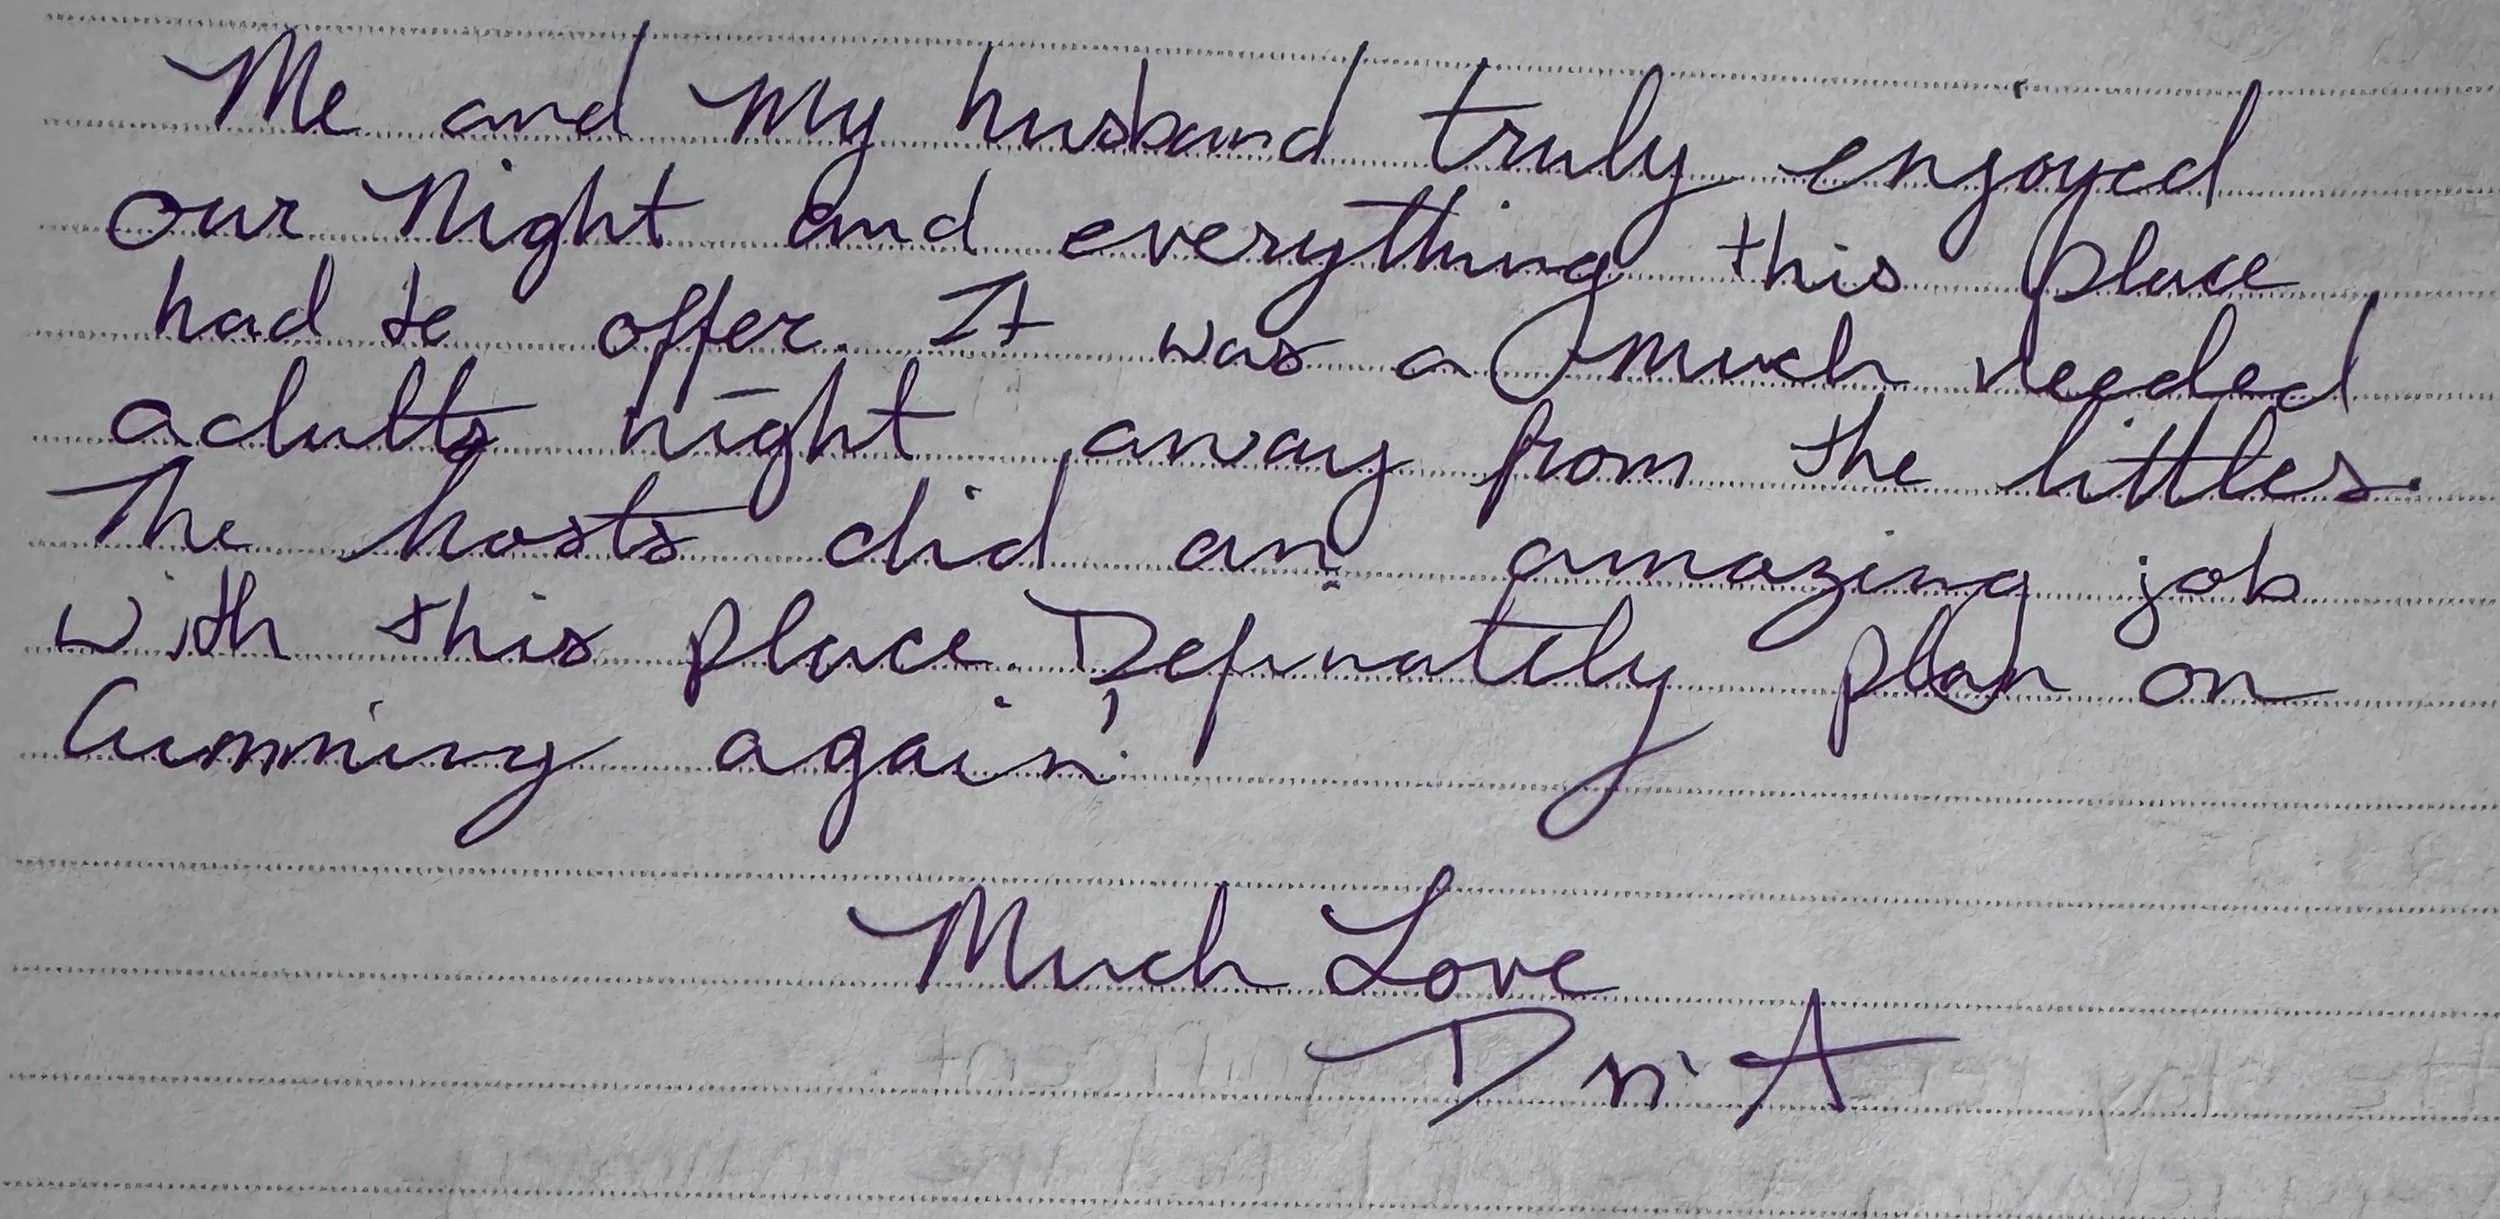 Me and my husband truly enjoyed
our Night and everything this place
had to offer. It was a much needed
adults night away from the littles.
The hosts did an amazing job
with this place. Definately plan on
Cumming again!
Much Love